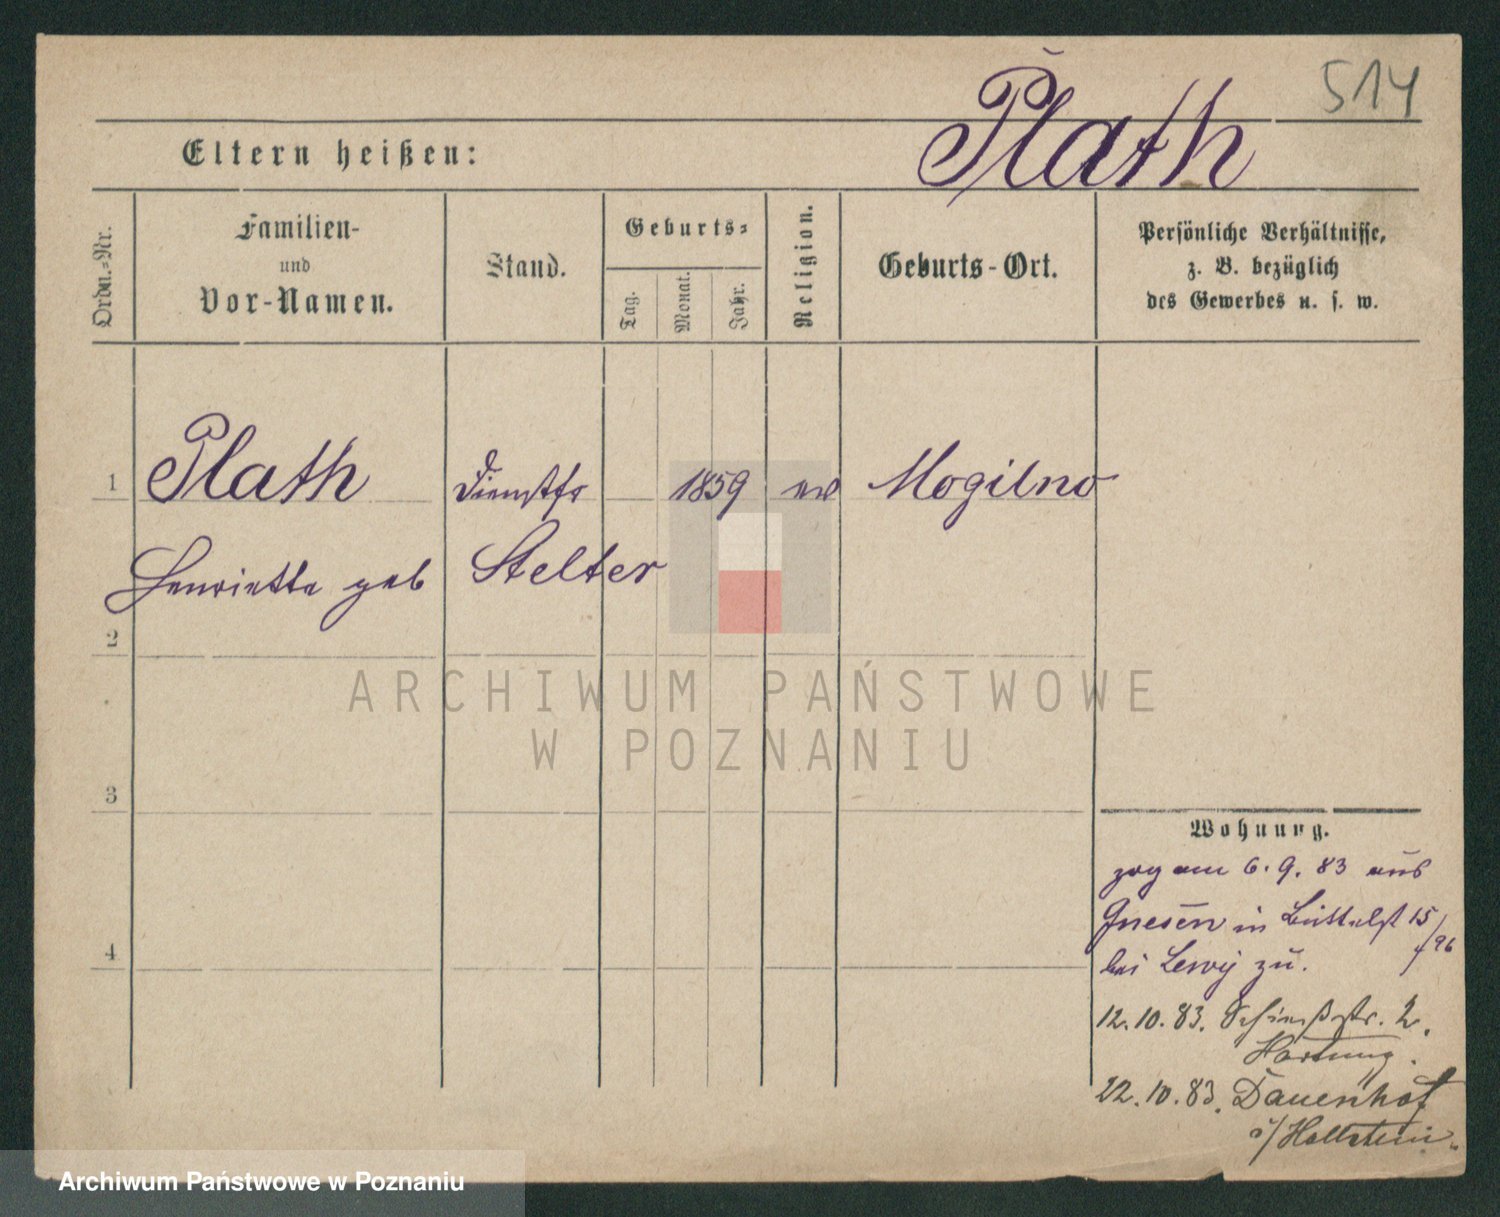 514
Plath
Eltern heißen:
Ordn.-Nr.
Familien-
und
Vor-Namen.
Stand.
Geburts-
Tag.
Monat.
Jahr.
Religion.
Geburts-Ort.
Persönliche Verhältnisse,
z. B. bezüglich
des Gewerbes u. s. w.
1 Plath Dienstfr 1859 ev Mogilno
Henriette geb Stelter
2
ARCHIWUM PAŃSTWOWE
W POZNANIU
3
Wohnung.
zog am 6. 9. 83 aus
Gnesen in 15
4
/96
bei Lewy zu.
12. 10. 83. Schießstr. 2.
Hartung.
22. 10. 83. Dauenhof
i/Hollstein.
Archiwum Państwowe w Poznaniu